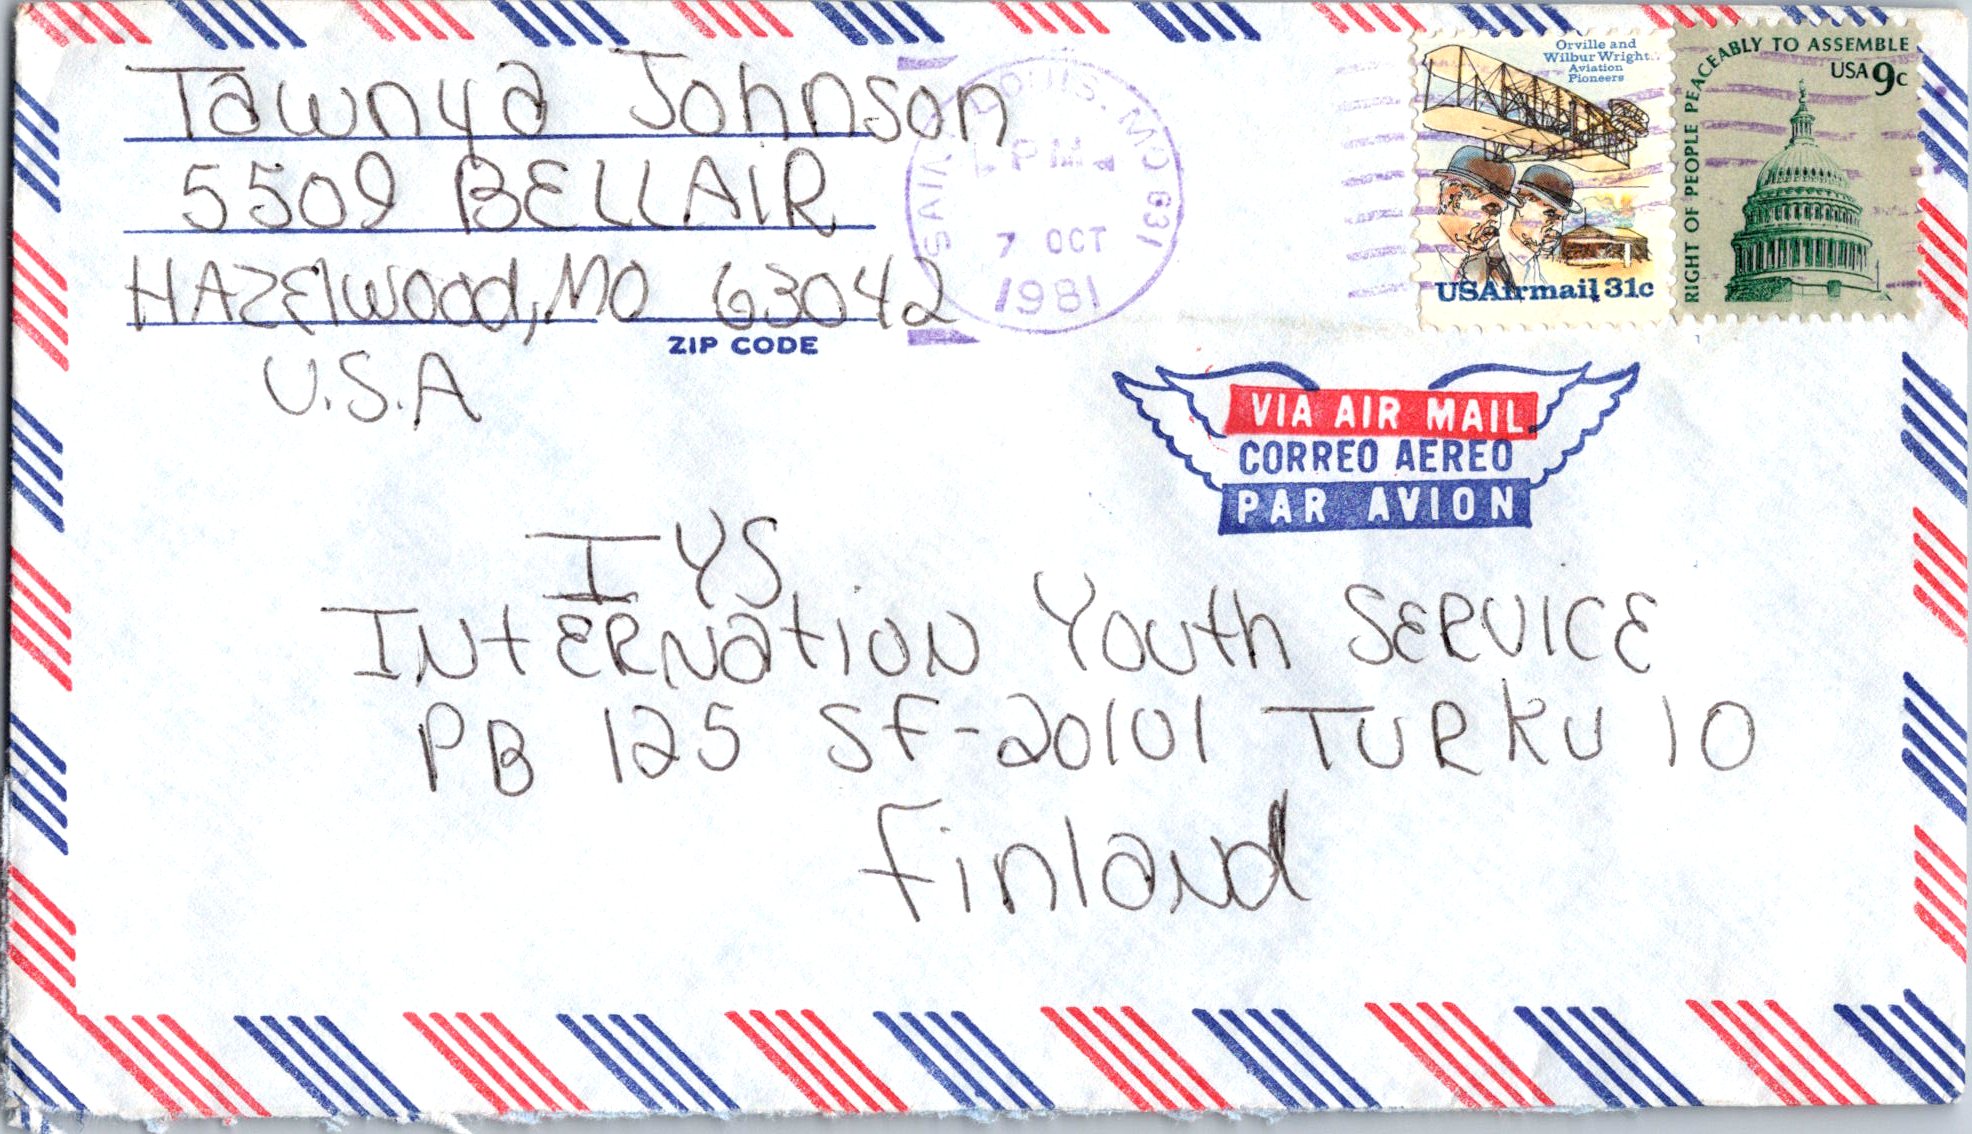 Tawnya Johnson
5509 BELLAIR
HAZElwood, MO 63042
ZIP CODE
U.S.A
SAINT LOUIS, MO 631
PM
7 OCT
1981
Orville and
Wilbur Wright
Aviation
Pioneers
USAirmail 31c
RIGHT OF PEOPLE PEACEABLY TO ASSEMBLE
USA 9c
VIA AIR MAIL
CORREO AEREO
PAR AVION
IYS
INtERNatioN Youth SERVICE
PB 125 SF-20101 TURKU 10
Finland